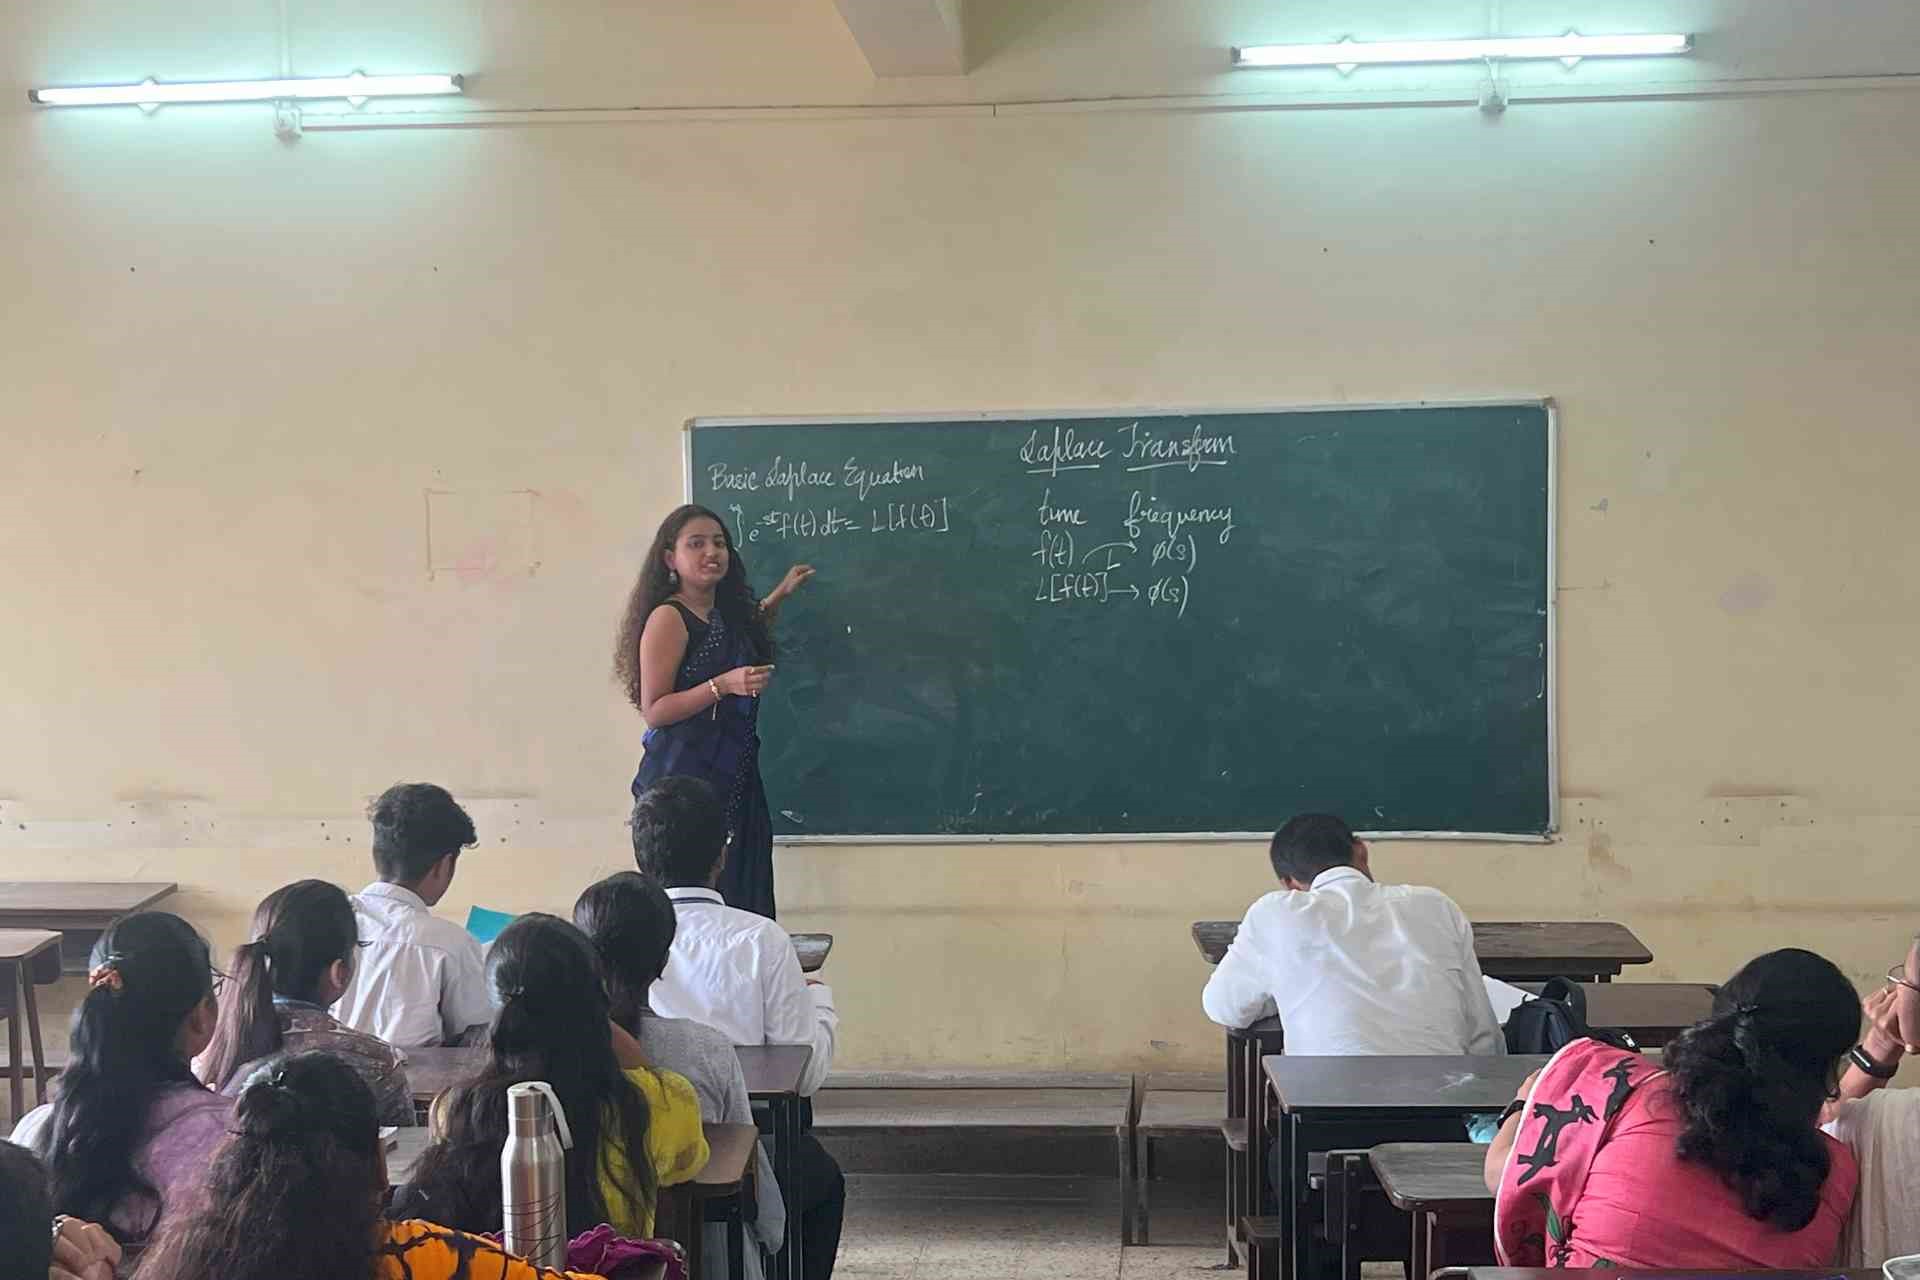 Laplace Transform
Basic Laplace Equation
∫e^-st f(t) dt = L[f(t)]
time frequency
f(t) L→ φ(s)
L[f(t)] → φ(s)